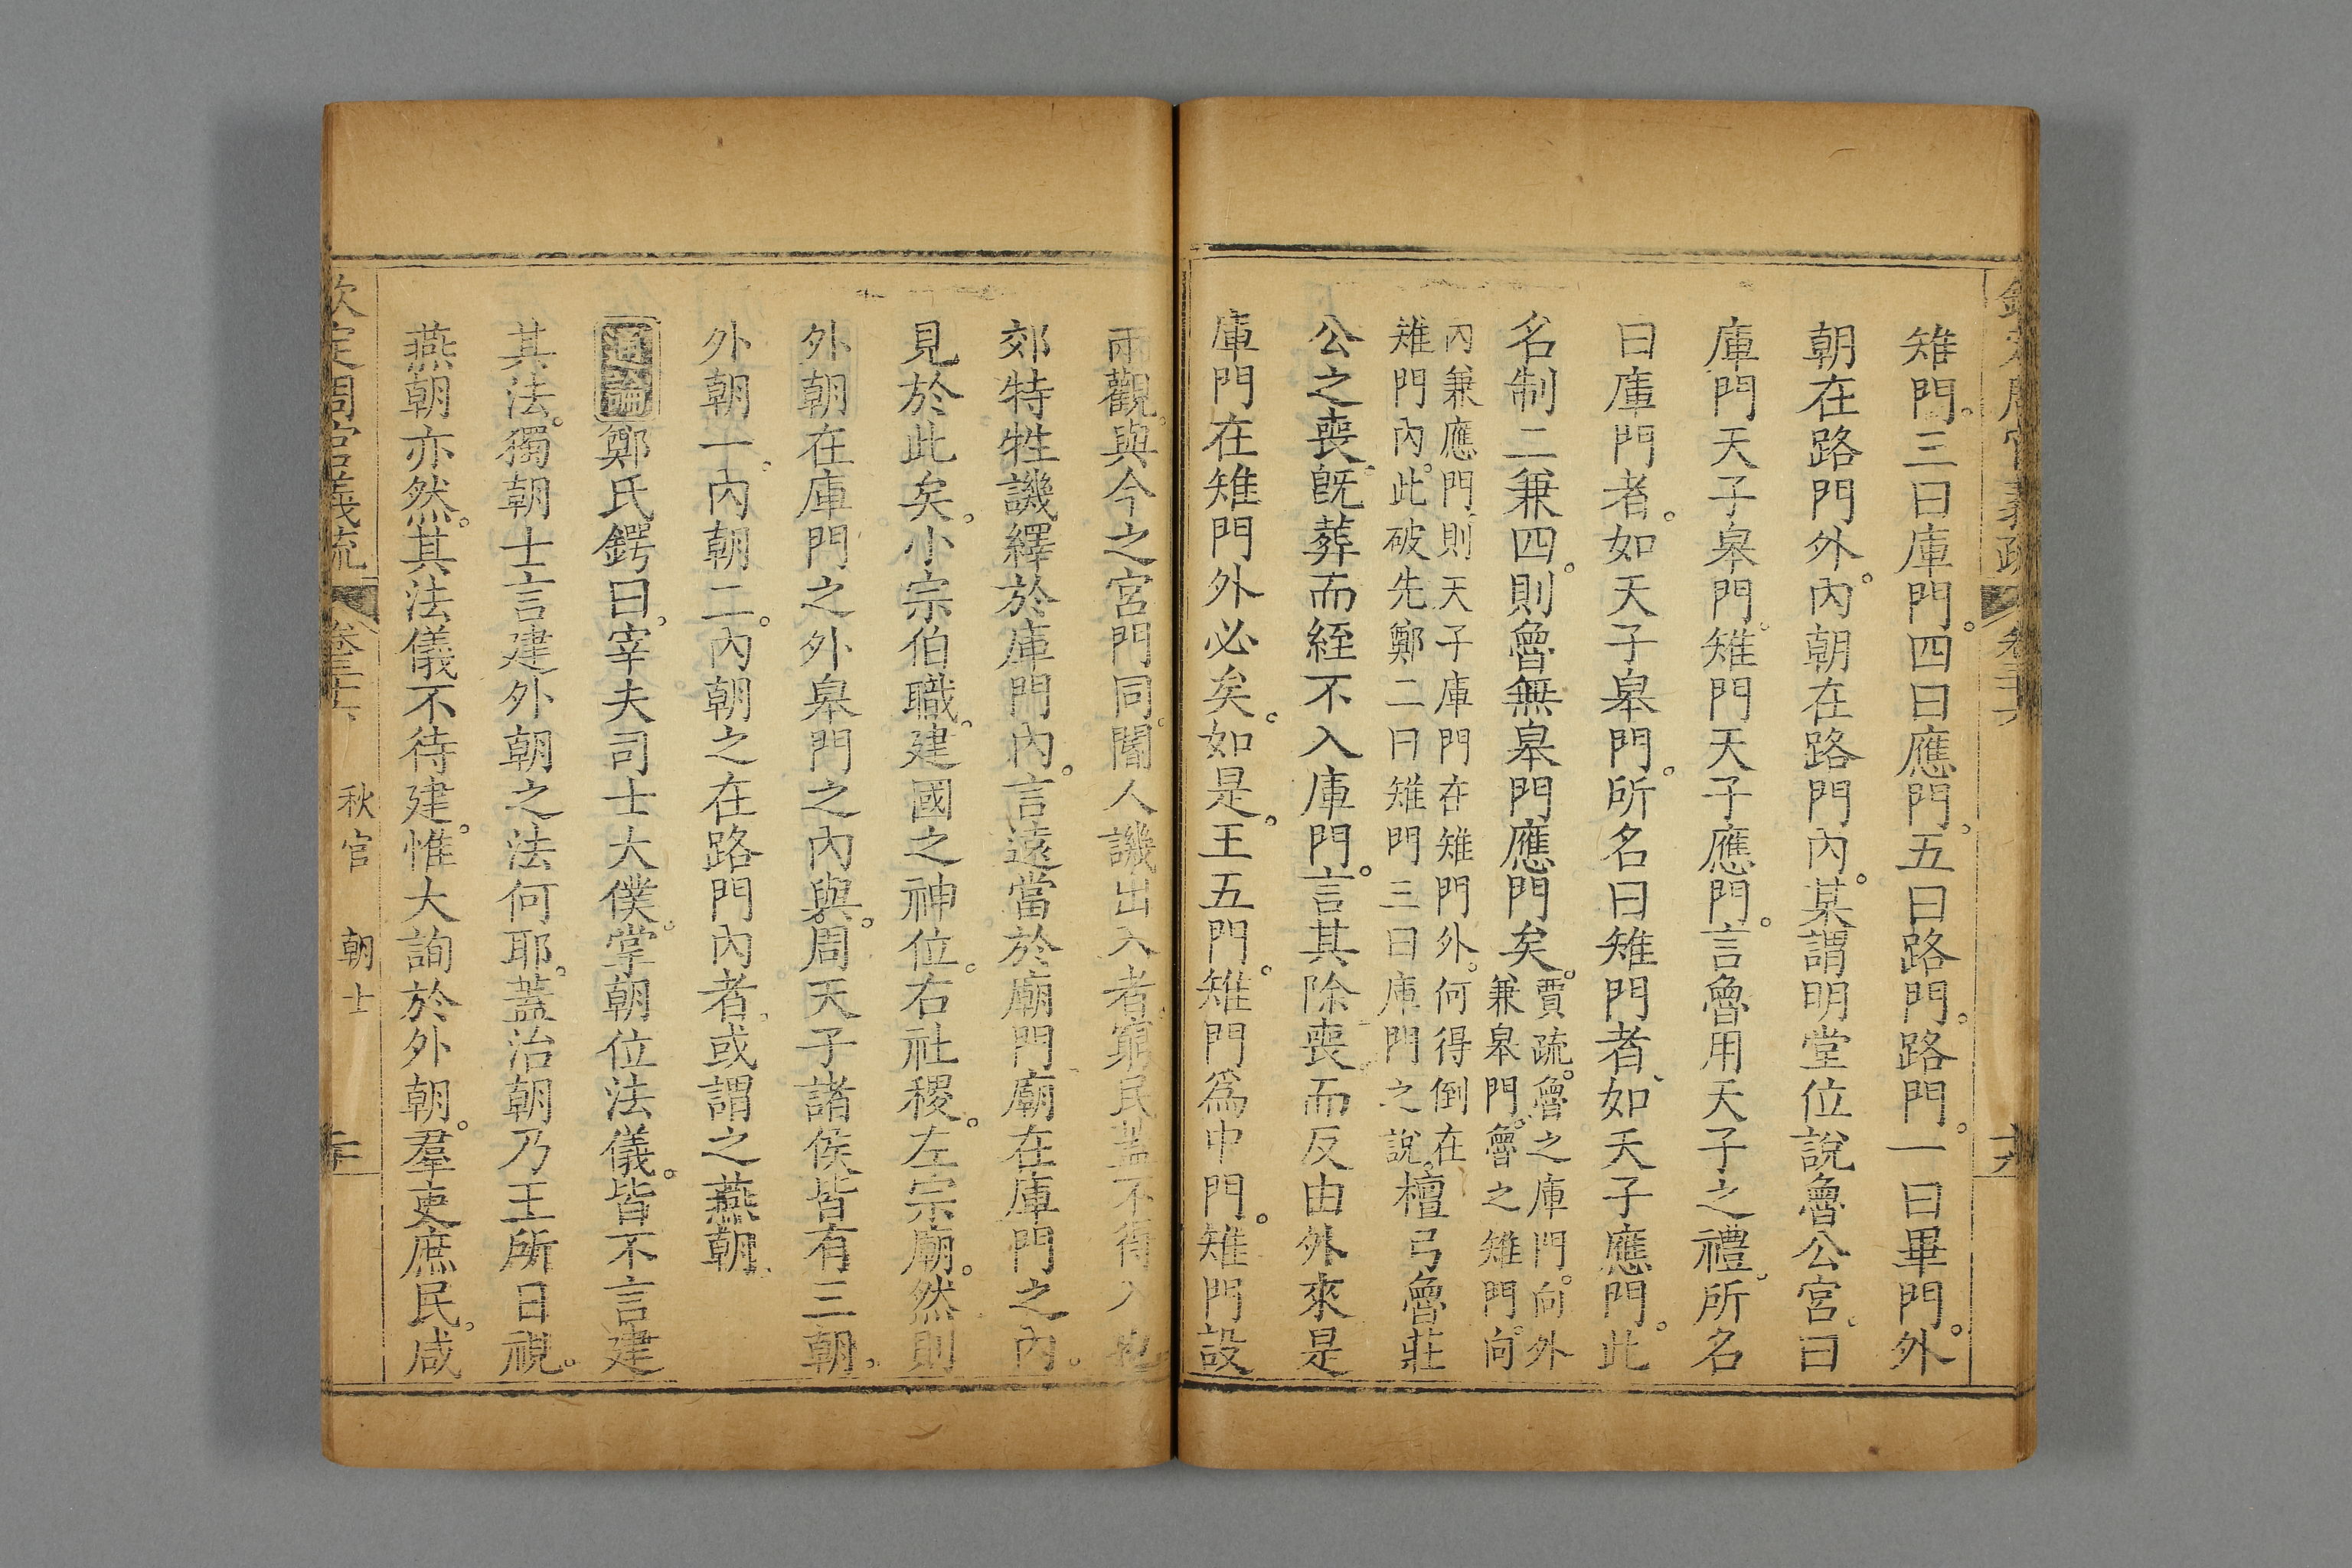 雉門。三曰庫門。四曰應門。五曰路門。路門。一曰畢門。外
朝在路門外。內朝在路門內。某謂明堂位說魯公宮。曰
庫門天子皋門。雉門天子應門。言魯用天子之禮。所名
曰庫門者。如天子皋門。所名曰雉門者、如天子應門。此
名制二兼四。則魯無皋門應門矣。
賈疏。魯之庫門。向外
兼皋門。魯之雉門。向
內兼應門則天子庫門在雉門外。何得倒在
雉門內。此破先鄭二曰雉門三曰庫門之說。
檀弓魯莊
公之喪。旣葬而絰不入庫門。言其除喪而反由外來是
庫門在雉門外必矣。如是。王五門。雉門爲中門。雉門設
兩觀。與今之宮門同。閽人譏出入者窮民蓋不得入也
郊特牲譏繹於庫門內。言遠當於廟門廟在庫門之內。
見於此矣。小宗伯職。建國之神位。右社稷。左宗廟。然則
外朝在庫門之外皋門之內與。周天子諸侯皆有三朝。
外朝一。內朝二。內朝之在路門內者。或謂之燕朝。
通論鄭氏鍔曰。宰夫司士大僕。掌朝位法儀。皆不言建
其法。獨朝士言建外朝之法何耶。蓋治朝乃王所日視。
燕朝亦然。其法儀不待建。惟大詢於外朝。羣吏庶民。咸
欽定周官義疏
秋官 朝士